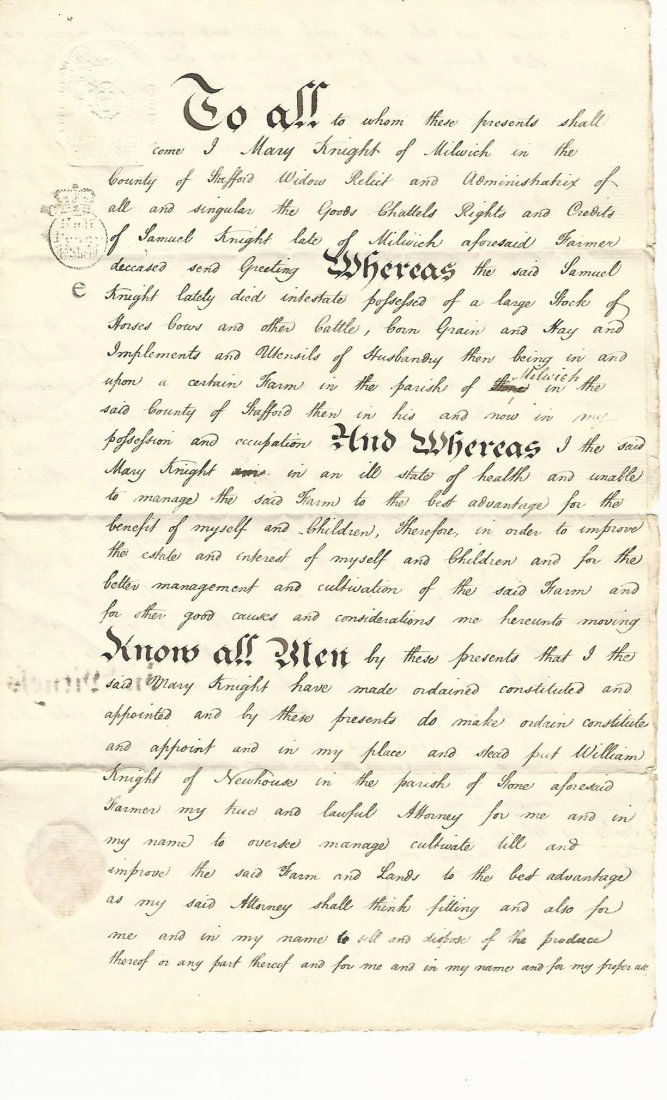 To all to whom these presents shall
come I Mary Knight of Milwich in the
County of Stafford Widow Relict and Administratrix of
all and singular the Goods Chattels Rights and Credits
of Samuel Knight late of Milwich aforesaid Farmer
deceased send Greeting Whereas the said Samuel
Knight lately died intestate possessed of a large Stock of
Horses Cows and other Cattle, Corn Grain and Hay and
Implements and Utensils of Husbandry then being in and
upon a certain Farm in the parish of Milwich in the
said County of Stafford then in his and now in my
possession and occupation And Whereas I the said
Mary Knight am in an ill state of health and unable
to manage the said Farm to the best advantage for the
benefit of myself and Children, Therefore, in order to improve
the estate and interest of myself and Children and for the
better management and cultivation of the said Farm and
for other good causes and considerations me hereunto moving
Know all Men by these presents that I the
said Mary Knight have made ordained constituted and
appointed and by these presents do make ordain constitute
and appoint and in my place and stead put William
Knight of Newhouse in the parish of Stone aforesaid
Farmer my true and lawful Attorney for me and in
my name to oversee manage cultivate till and
improve the said Farm and Lands to the best advantage
as my said Attorney shall think fitting and also for
me and in my name to sell and dispose of the produce
thereof or any part thereof and for me and in my name and for my proper use